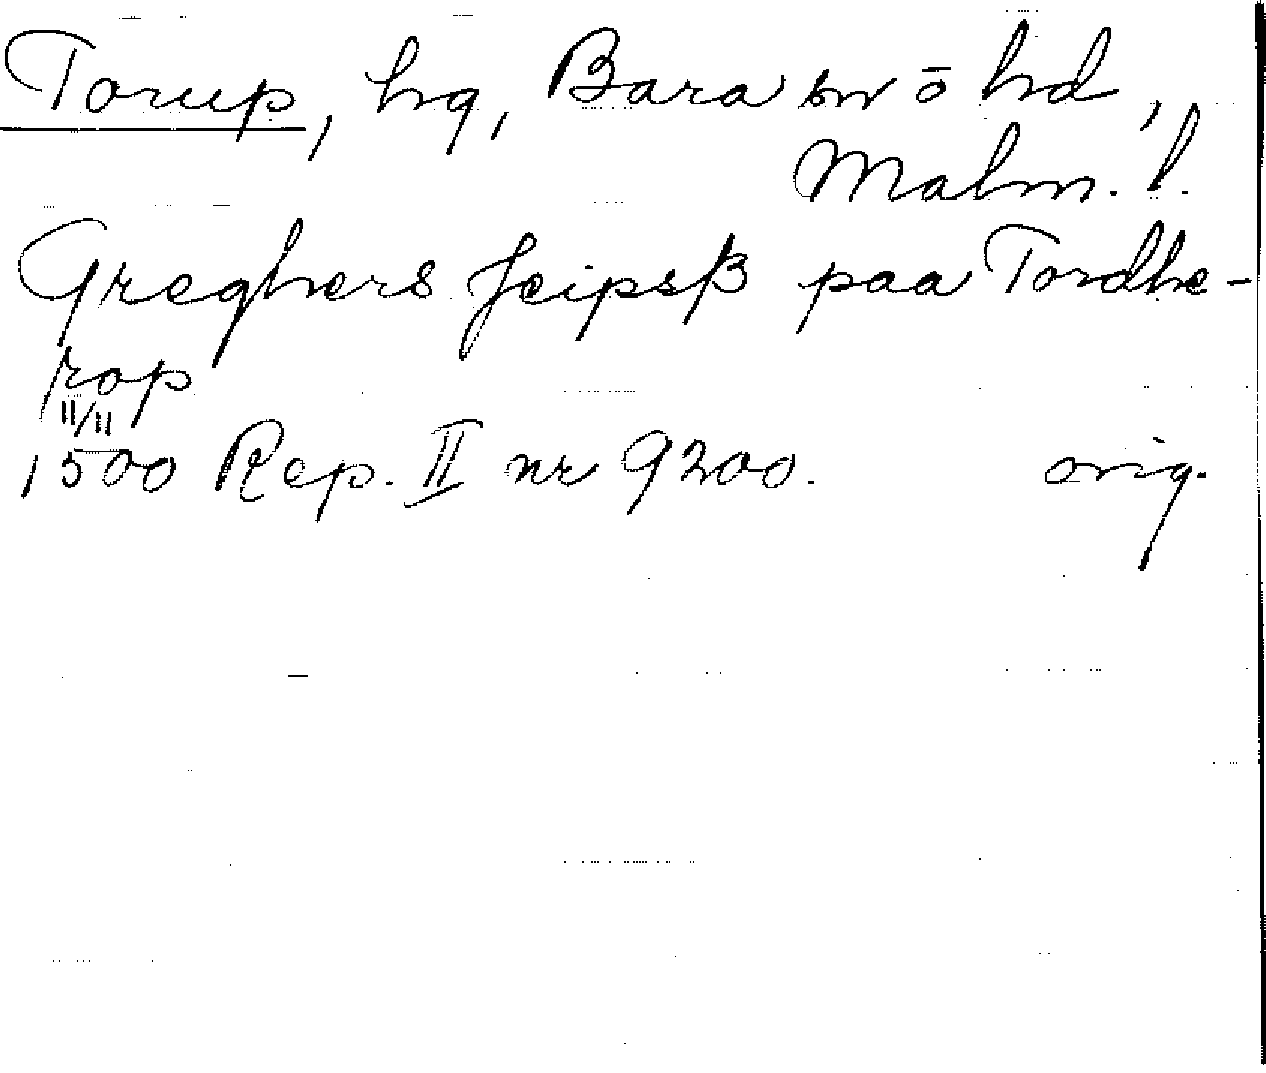 Torup, hg, Bara sn ō hd,
Malm. l.
Greghers Jeipsß paa Tordhe-
rop
11/11
1500 Rep. II nr 9200. orig.